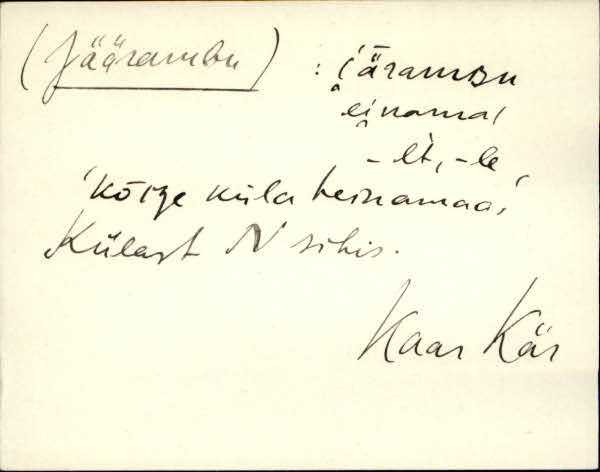 (Jäärambu) : i̯ärambu
ei̯namal
-lt, -le
'kõige küla heinamaa'
Külast N sihis.
Kaar Kär